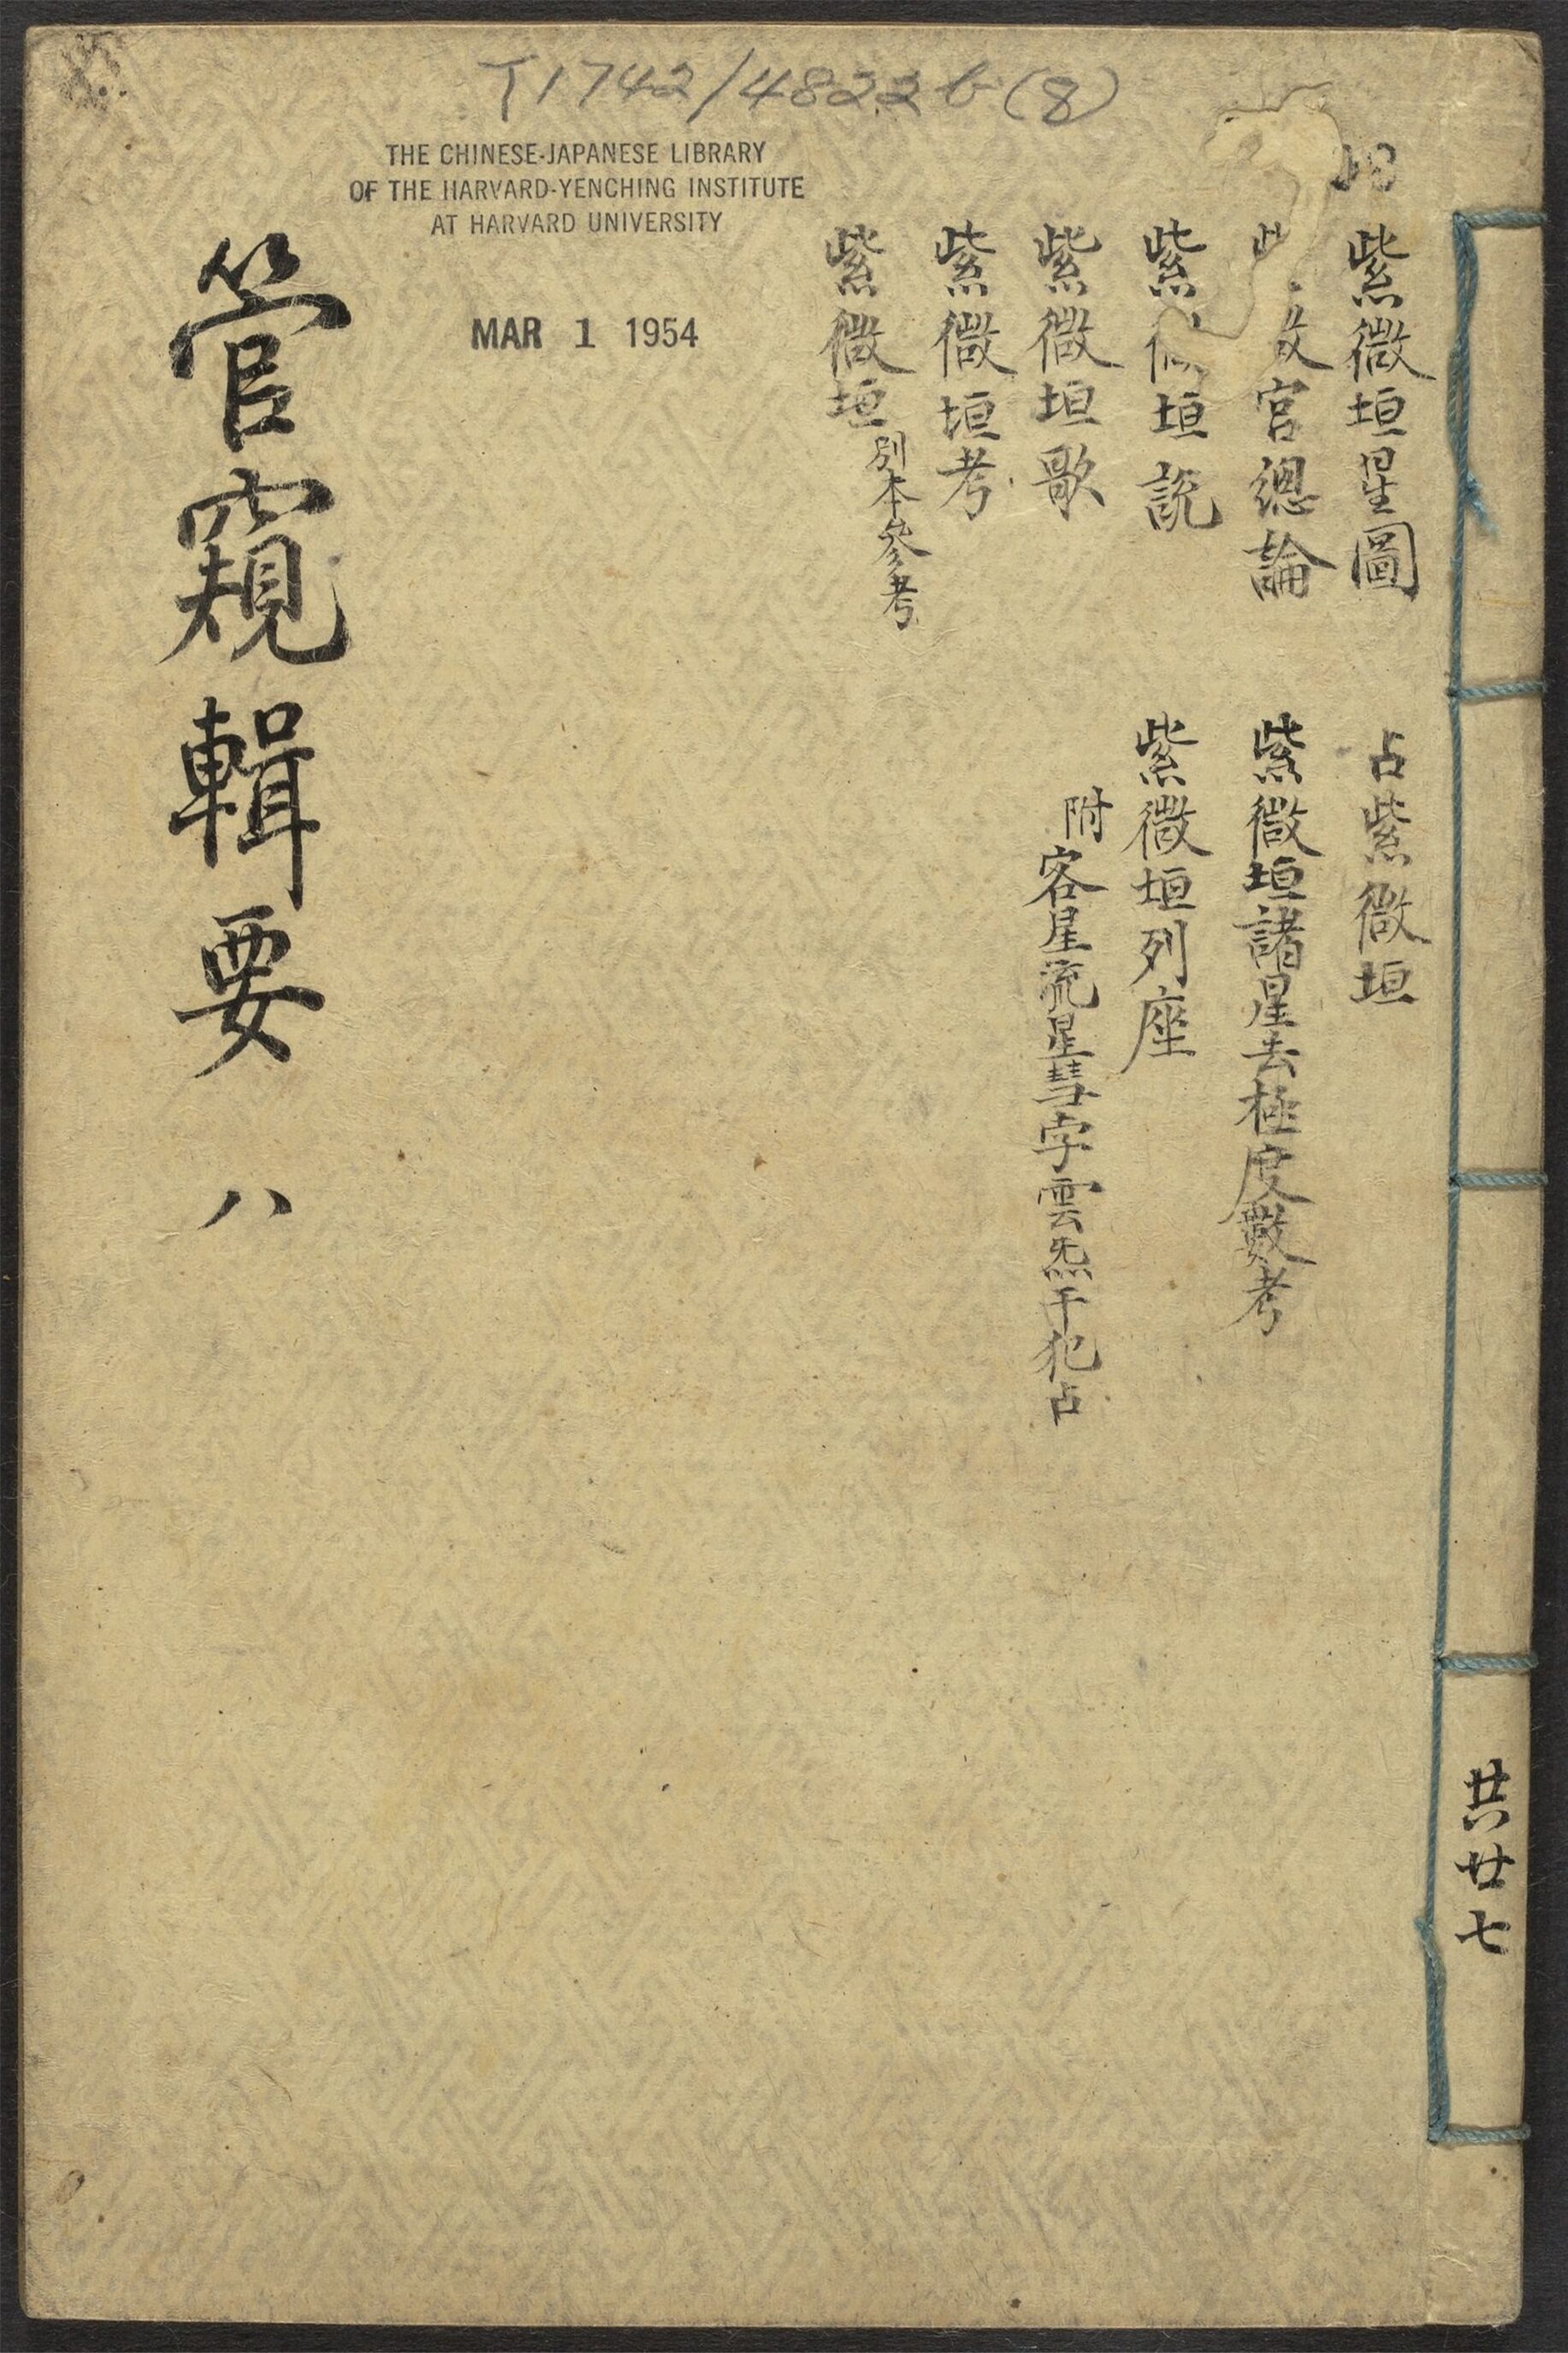 T1742/4822b(8)
THE CHINESE-JAPANESE LIBRARY
OF THE HARVARD-YENCHING INSTITUTE
AT HARVARD UNIVERSITY
MAR 1 1954
紫微垣星圖
宮總論
紫微垣説
紫微垣歌
紫微垣考
紫微垣別本參考
占紫微垣
紫微垣諸星去極度數考
紫微垣列座
附客星流星彗孛雲炁干犯占
管窺輯要 八
共廿七